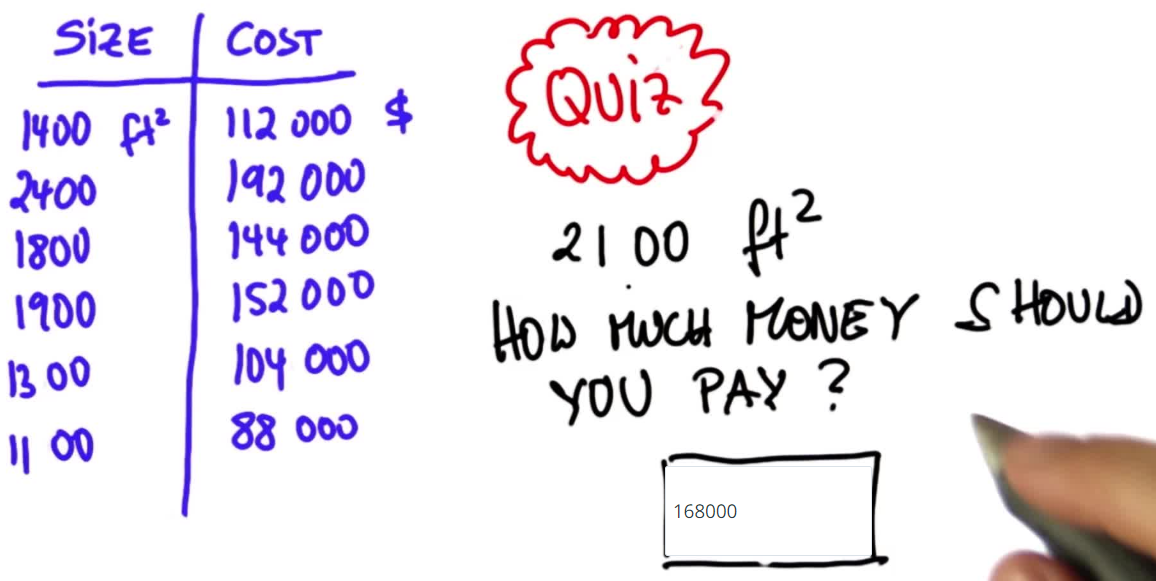 SiZE COST
1400 ft² 112 000 $
2400 192 000
1800 144 000
1900 152 000
1300 104 000
1100 88 000
QUiZ
2100 ft²
HOW MUCH MONEY SHOULD
YOU PAY?
168000